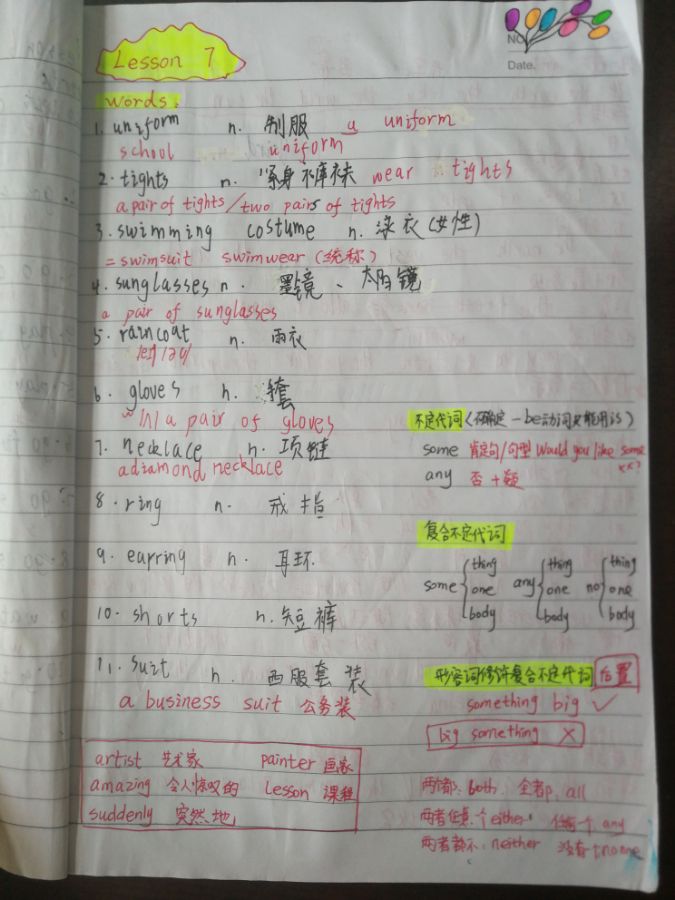 Lesson 7
NO
Date.
words.
1. uniform n. 制服 a uniform
school uniform
2. tights n. 紧身裤袜 wear tights
a pair of tights/two pairs of tights
3. swimming costume n. 泳衣(女性)
=swimsuit swimwear(统称)
4. sunglasses n. 墨镜、太阳镜
a pair of sunglasses
5. raincoat n. 雨衣
6. gloves n. 手套
a pair of gloves
7. necklace n. 项链
a diamond necklace
8. ring n. 戒指
9. earring n. 耳环
10. shorts n. 短裤
11. suit n. 西服套装
a business suit 公务装
artist 艺术家 painter 画家
amazing 令人惊叹的 lesson 课程
suddenly 突然地
不定代词(不确定-be动词只能用is)
some 肯定句/句型 Would you like some xx?
any 否+疑
复合不定代词
some thing one body any thing one body no thing one body
形容词修饰复合不定代词 后置
something big ✓
big something ×
两者都: both 全者都: all
两者任意一个either 任何一个 any
两者都不: neither 没有一个none